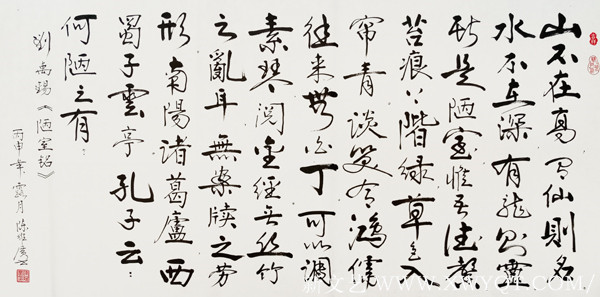 山不在高有仙則名
水不在深有龍則靈
斯是陋室惟吾德馨
苔痕上階綠草色入
帘青談笑有鴻儒
往來無白丁可以調
素琴閱金經無丝竹
之亂耳無案牍之劳
形南陽諸葛廬西
蜀子雲亭孔子云：
何陋之有
劉禹錫《陋室铭》
丙申年 月陈